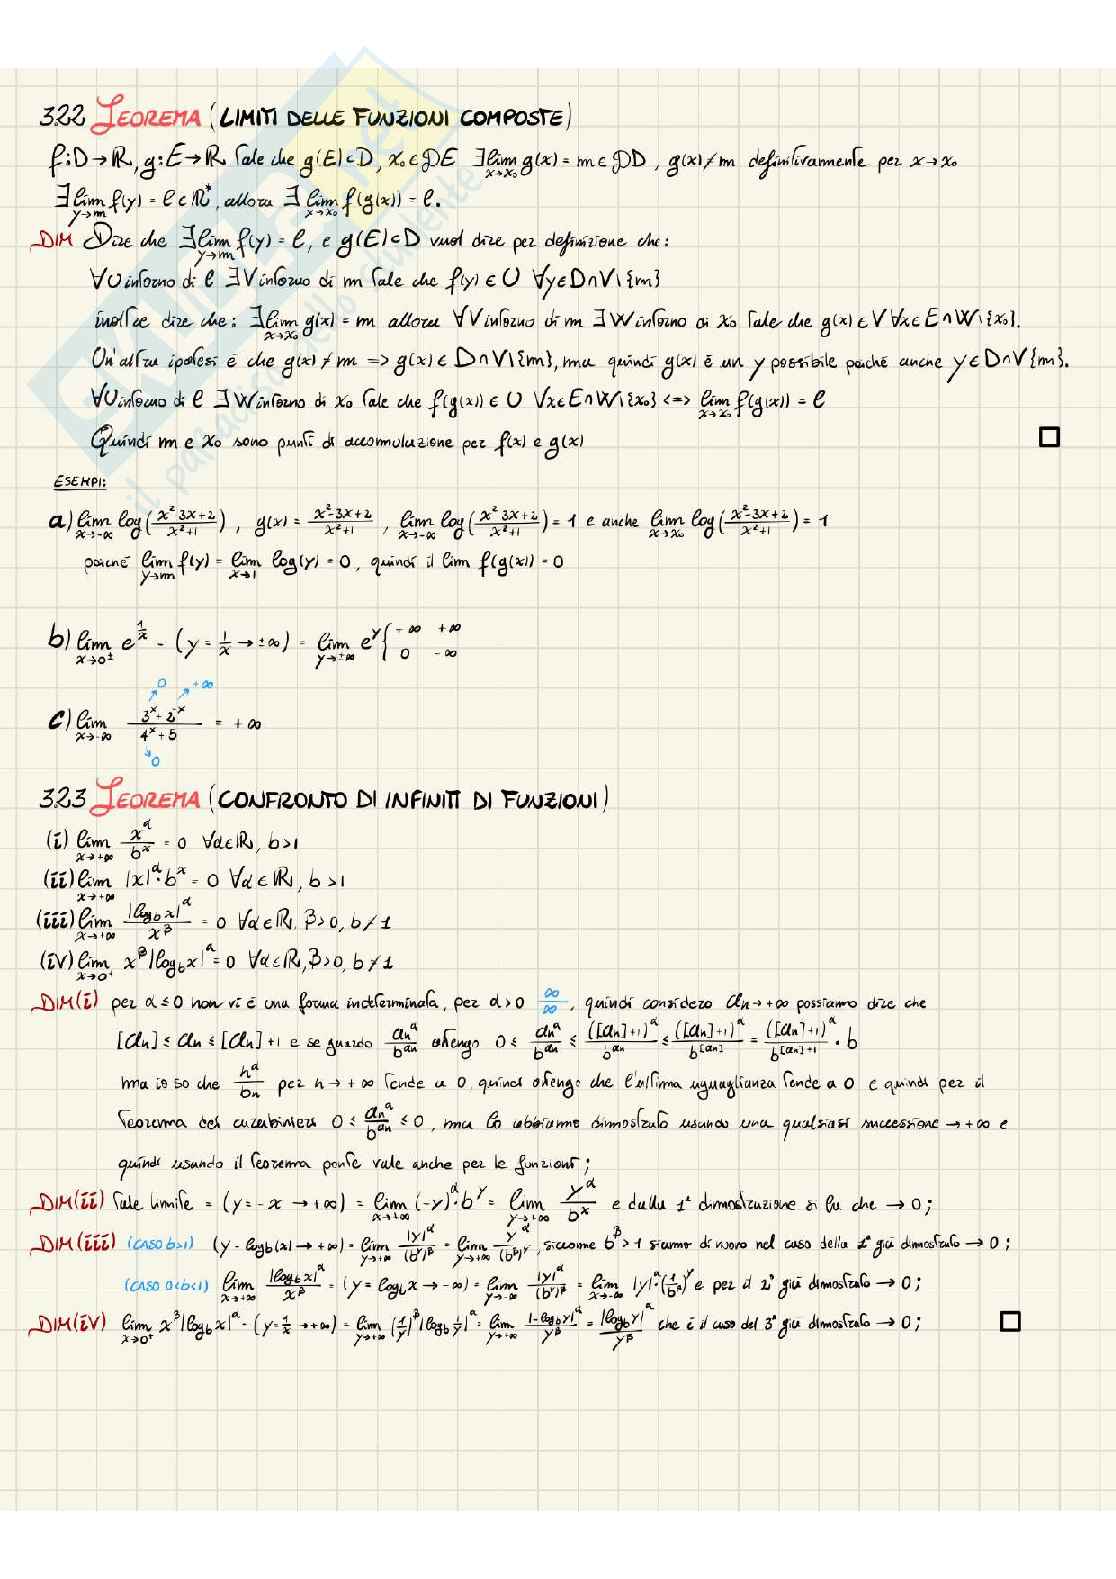 322 TEOREMA (LIMITI DELLE FUNZIONI COMPOSTE)
f:D→ℝ, g:E→ℝ tale che g(E)⊂D, x₀∈𝒟E ∃lim_{x→x₀} g(x) = m∈𝒟D, g(x)≠m definitivamente per x→x₀
∃lim_{y→m} f(y) = ℓ∈ℝ*, allora ∃ lim_{x→x₀} f(g(x)) = ℓ.
DIM Dire che ∃lim_{y→m} f(y) = ℓ, e g(E)⊂D vuol dire per definizione che:
∀U intorno di ℓ ∃V intorno di m tale che f(y)∈U ∀y∈D∩V\{m}
inoltre dire che: ∃lim_{x→x₀} g(x) = m allora ∀V intorno di m ∃W intorno di x₀ tale che g(x)∈V ∀x∈E∩W\{x₀}.
Un'altra ipotesi è che g(x)≠m => g(x)∈D∩V\{m}, ma quindi g(x) è un y possibile poiché anche y∈D∩V{m}.
∀U intorno di ℓ ∃W intorno di x₀ tale che f(g(x))∈U ∀x∈E∩W\{x₀} <=> lim_{x→x₀} f(g(x)) = ℓ
Quindi m e x₀ sono punti di accomulazione per f(x) e g(x) □
ESEMPI:
a) lim_{x→-∞} log((x² 3x+2)/(x²+1)), g(x) = (x²-3x+2)/(x²+1), lim_{x→-∞} log((x² 3x+2)/(x²+1)) = 1 e anche lim_{x→x₀} log((x²-3x+2)/(x²+1)) = 1
poiché lim_{y→m} f(y) = lim_{x→1} log(y) = 0, quindi il lim f(g(x)) = 0
b) lim_{x→0±} e^{1/x} = (y = 1/x → ±∞) = lim_{y→±∞} e^y { -∞ +∞
0 -∞
0 +∞
c) lim_{x→-∞} (3^x + 2^{-x})/(4^x + 5) = +∞
0
323 TEOREMA (CONFRONTO DI INFINITI DI FUNZIONI)
(i) lim_{x→+∞} x^α/b^x = 0 ∀α∈ℝ, b>1
(ii) lim_{x→+∞} |x|^α·b^x = 0 ∀α∈ℝ, b>1
(iii) lim_{x→+∞} |log_b x|^α/x^β = 0 ∀α∈ℝ, β>0, b≠1
(iv) lim_{x→0⁺} x^β|log_b x|^α = 0 ∀α∈ℝ, β>0, b≠1
DIM(i) per α≤0 non vi è una forma indeterminata, per α>0 ∞/∞, quindi considero a_n→+∞ possiamo dire che
[a_n] ≤ a_n ≤ [a_n]+1 e se guardo a_n^α/b^{a_n} ottengo 0 ≤ a_n^α/b^{a_n} ≤ ([a_n]+1)^α/b^{a_n} ≤ ([a_n]+1)^α/b^{[a_n]} = ([a_n]+1)^α/b^{[a_n]+1} · b
ma io so che n^α/b^n per n→+∞ tende a 0, quindi ottengo che l'ultima uguaglianza tende a 0 e quindi per il
teorema dei carabinieri 0 ≤ a_n^α/b^{a_n} ≤ 0, ma lo abbiamo dimostrato usando una qualsiasi successione →+∞ e
quindi usando il teorema ponte vale anche per le funzioni;
DIM(ii) tale limite = (y = -x → +∞) = lim_{x→+∞} (-y)^α·b^y = lim_{y→+∞} y^α/b^x e dalla 1ª dimostrazione si ha che → 0;
DIM(iii) (CASO b>1) (y = log_b(x) → +∞) = lim_{y→+∞} |y|^α/(b^y)^β = lim_{y→+∞} y^α/(b^β)^y, siccome b^β>1 siamo di nuovo nel caso della 1ª già dimostrato → 0;
(CASO 0<b<1) lim_{x→+∞} |log_b x|^α/x^β = (y = log_b x → -∞) = lim_{y→-∞} |y|^α/(b^y)^β = lim_{x→-∞} |y|^α·(1/b^α)^y e per il 2º già dimostrato → 0;
DIM(iv) lim_{x→0⁺} x^β|log_b x|^α = (y = 1/x → +∞) = lim_{y→+∞} (1/y)^β|log_b 1/y|^α = lim_{y→+∞} |-log_b y|^α/y^β = |log_b y|^α/y^β che è il caso del 3º già dimostrato → 0; □